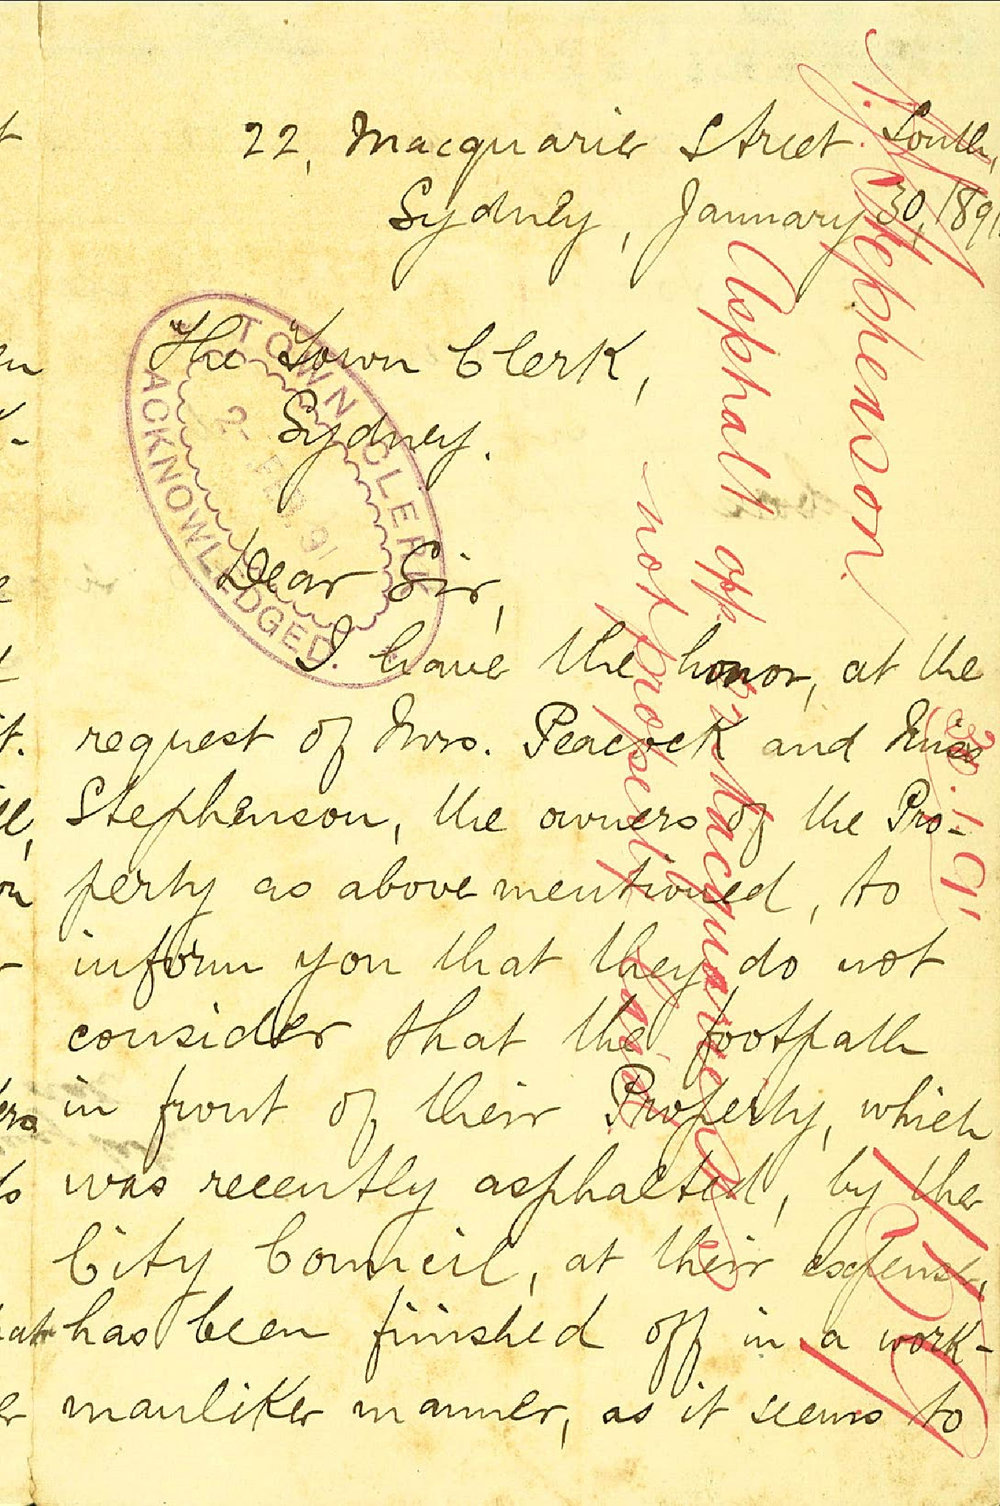 22, Macquarie Street South,
Sydney, January 30, 1891.
The Town Clerk,
Sydney.
Dear Sir,
I have the honor, at the
request of Mrs. Peacock and Miss
Stephenson, the owners of the Pro-
perty as above mentioned, to
inform you that they do not
consider that the footpath
in front of their Property, which
was recently asphalted, by the
City Council, at their expense,
has been finished off in a work-
manlike manner, as it seems to
TOWN CLERK
2- FEB. 91
ACKNOWLEDGED.
Stephenson.
30.1.91
Asphalt opp 22 Macquarie St
not properly laid